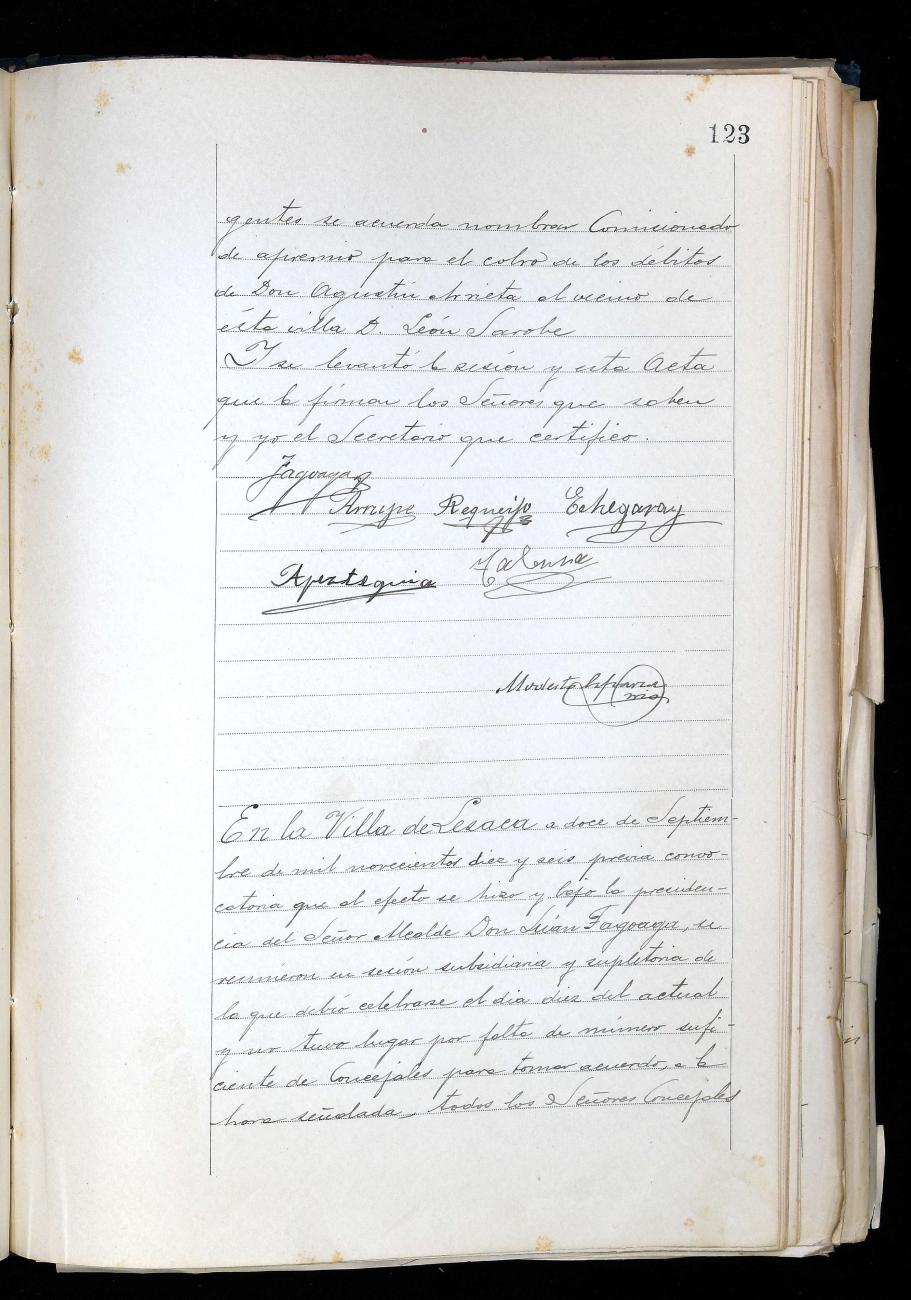 123
gentes se acuerda nombrar Comisionado
de apremio para el cobro de los débitos
de Don Agustin Arrieta al vecino de
ésta villa D. León Sarobe
Y se levantó la sesión y esta Acta
que la firman los Señores que saben
y yo el Secretario que certifico.
Fagoaga
Arrupe Requeijo Echegaray
Apezteguia
Modesto
En la Villa de Lesaca a doce de Septiem-
bre de mil novecientos diez y seis previa convo-
catoria que al efecto se hizo y bajo la presiden-
cia del Señor Alcalde Don Julián Fagoaga, se
reunieron en sesión subsidiaria y supletoria de
la que debió celebrarse el dia diez del actual
y no tuvo lugar por falta de número sufi-
ciente de Concejales para tomar acuerdo, a la
hora señalada, todos los Señores Concejales